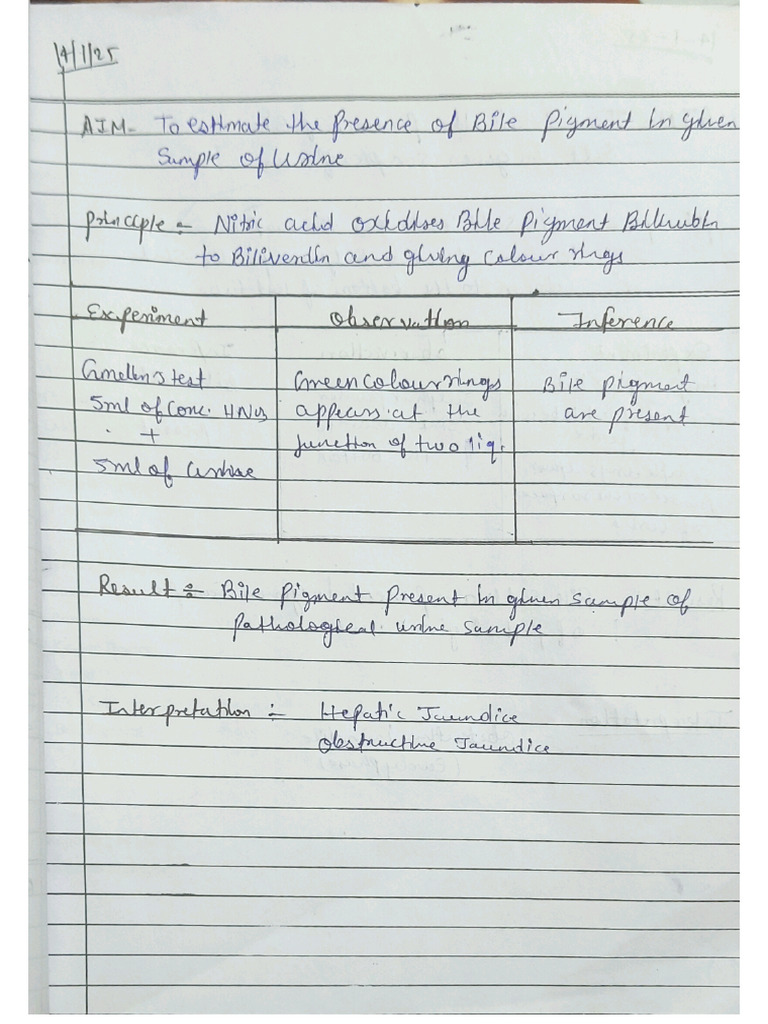 14/1/25
AIM- To estimate the Presence of Bile Pigment in given
Sample of Urine
Principle :- Nitric acid oxidises Bile Pigment Bilirubin
to Biliverdin and giving colour rings
Experiment Observation Inference
Gmelin's test Green colour rings Bile pigment
5ml of Conc. HNO3 appears at the are present
+ junction of two liq.
5ml of urine
Result :- Bile Pigment present in given sample of
Pathological urine sample
Interpretation :- Hepatic Jaundice
Obstructive Jaundice